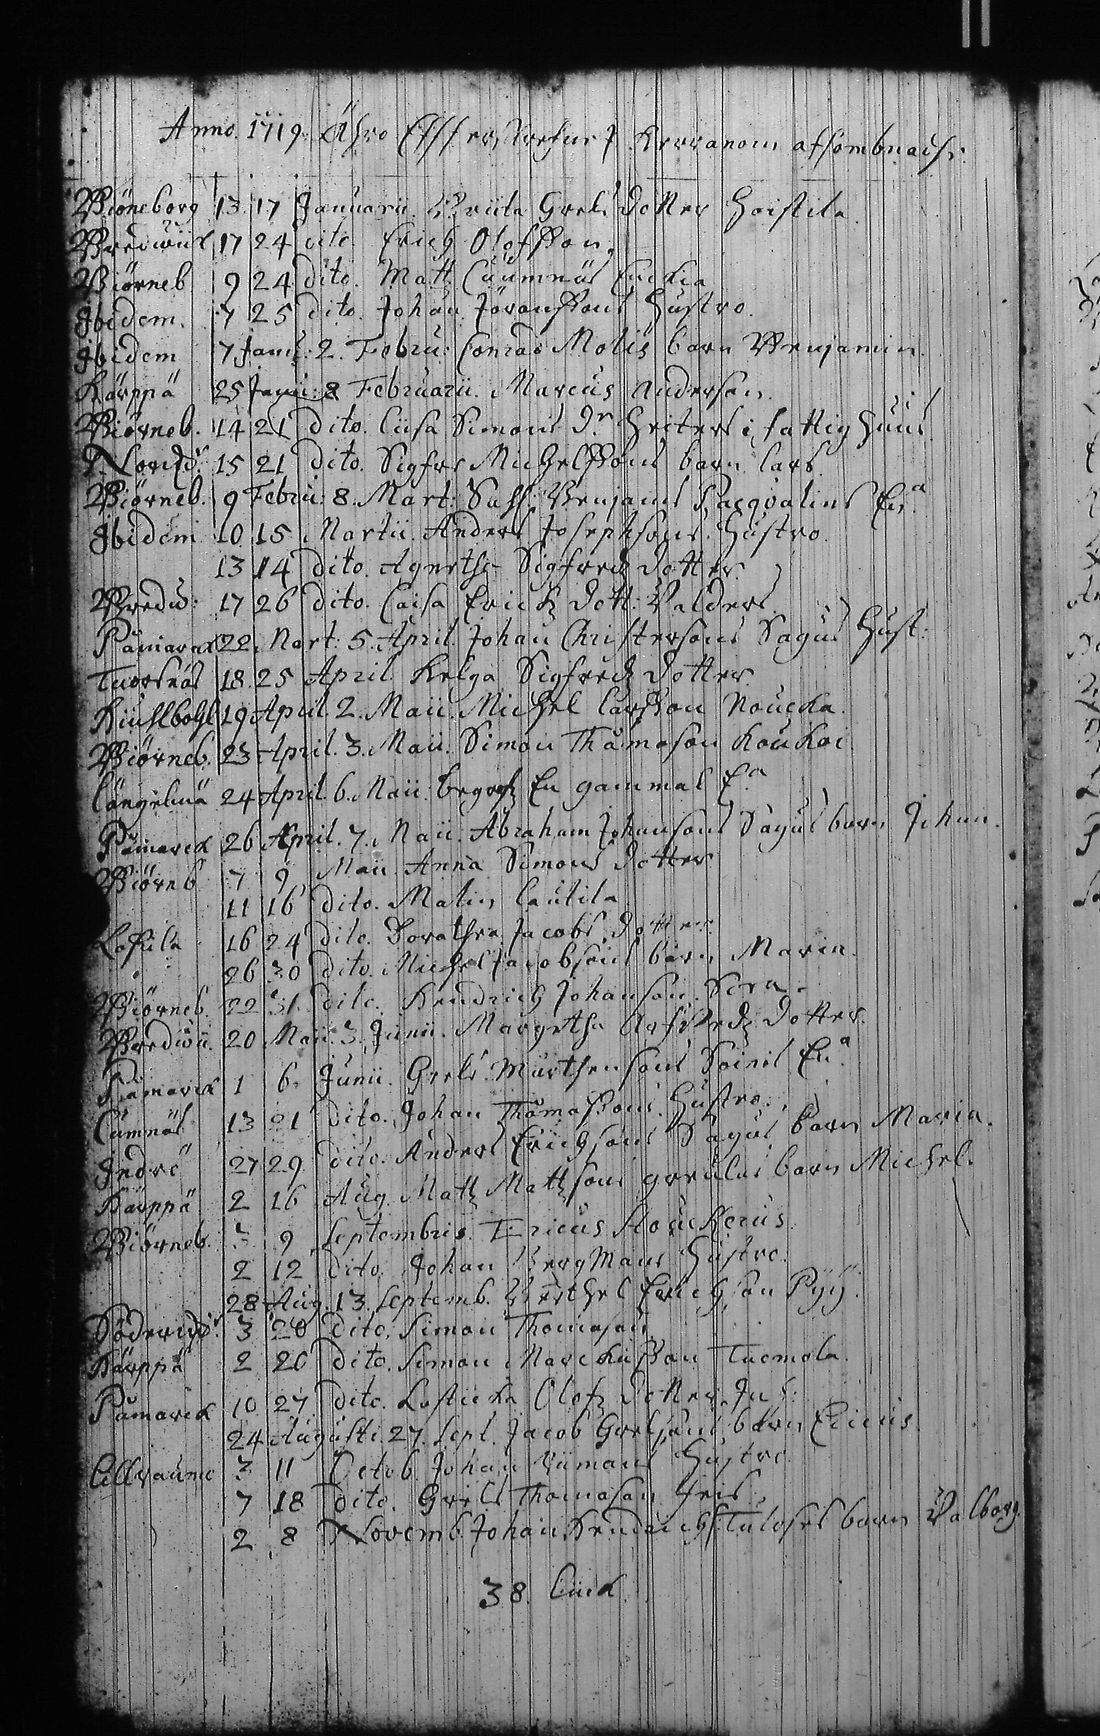 Anno 1719. Ähro Effterskrefne J Herranom afsombnade.
Biöneborg 13 17 Januarii Brita Grels dotter Hoistila
Bredwiik 17 24 dito. Erich Olofsson.
Biörneb 9 24 dito. Matz Cuumnäs Enckia
Ibidem. 7 25 dito. Johan Jöranssons Hustro.
Ibidem 7 Janu: 2. Febru: Conrad Molis barn Benjamin.
Kärppä 25 Janu: 8 Februarii. Marcus Anderson.
Biörneb. 14 21 dito. Lisa Simons dr Heiters i fattighuus
Norrby 15 21 dito. Sigfred Michelssons barn Lars.
Biörneb. 9 Febru: 8. Mart: Sahl: Benjams Paqvalins Ena
Ibidem 10 15 Martii. Anders Josephsons Hustro.
13 14 dito. Agnetha Sigfredz dotter.
Bredw: 17 26 dito. Caisa Erickz dott: Valders.
Påmarck 22. Mart: 5. April. Johan Christersons Sagus Hust:
Tuorsnäs 18. 25 April Helga Sigfredz dotter.
19 April. 2. Maii. Michel Larsson Noucka.
Biörneb. 23 April. 3. Maii. Simon Thomason Koukoi
Längelmä 24 April. 6. Maii. begrofz En gammal Ea
Påmarck 26 April. 7. Maii. Abraham Johansons Sagus barn Johan.
Biörneb 7 9 Maii Anna Simons dotter
11 16 dito. Malin Lautila.
16 24 dito. Dorathea Jacobs dotter
26 30 dito. Michel Jacobsons barn Maria.
Biörneb. 22 31 dito. Hendrich Johanson
Bredwii. 20 Maii. 3. Junii. Margetha dotter.
Påmarck 1 6. Junii. Grels Mårthensons Ena
Cumnäs 13 21 dito. Johan Thomassons Hustro.
Inderö 27 29 dito. Anders Erichsons Sagus barn Maria.
Kärppä 2 16 Aug. Matz Matzsons barn Michel.
Biörneb. 3 9 Septembris. Ericus
2 12 dito. Johan Bergmans Hustro.
28 Aug. 13. Septemb. Berthel Erichson Pyy.
3 20 dito. Simon Thomason
Kärppä 2 20 dito. Simon Marckusson Tuomola.
Påmarck 10 27 dito. Olofz dotter
24 Augusti 27. Sept. Jacob Grelsons barn Ericus.
Ullvaumo 3 11 Octob. Johan Hustro
7 18 dito. Grels Thomason
2 8 Novemb. Johan Hendrichs barn Valborg.
38 Liik